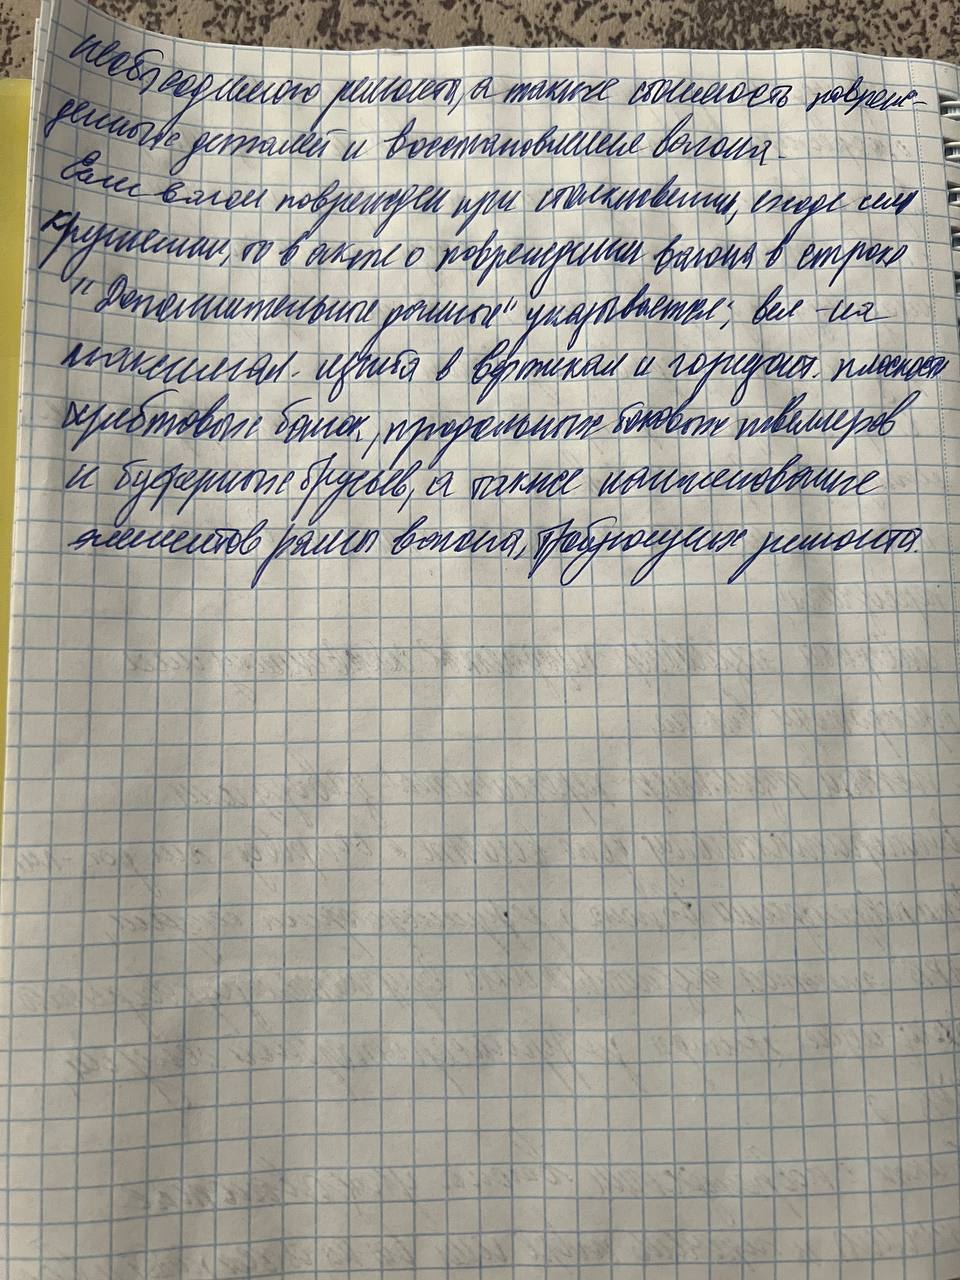 необходимого ремонта, а также стоимость повреж-
денных деталей и восстановления вагона.
Если вагон поврежден при столкновении, сходе или
крушении, то в акте о повреждении вагона в строке
"Дополнительные данные" указывается; вел-на
максимал. изгиба в вертикал и горизонт. плоскости
хребтовых балок, продольных боковых швеллеров
и буферных брусьев, а также наименование
элементов рамы вагона, требующих ремонта.